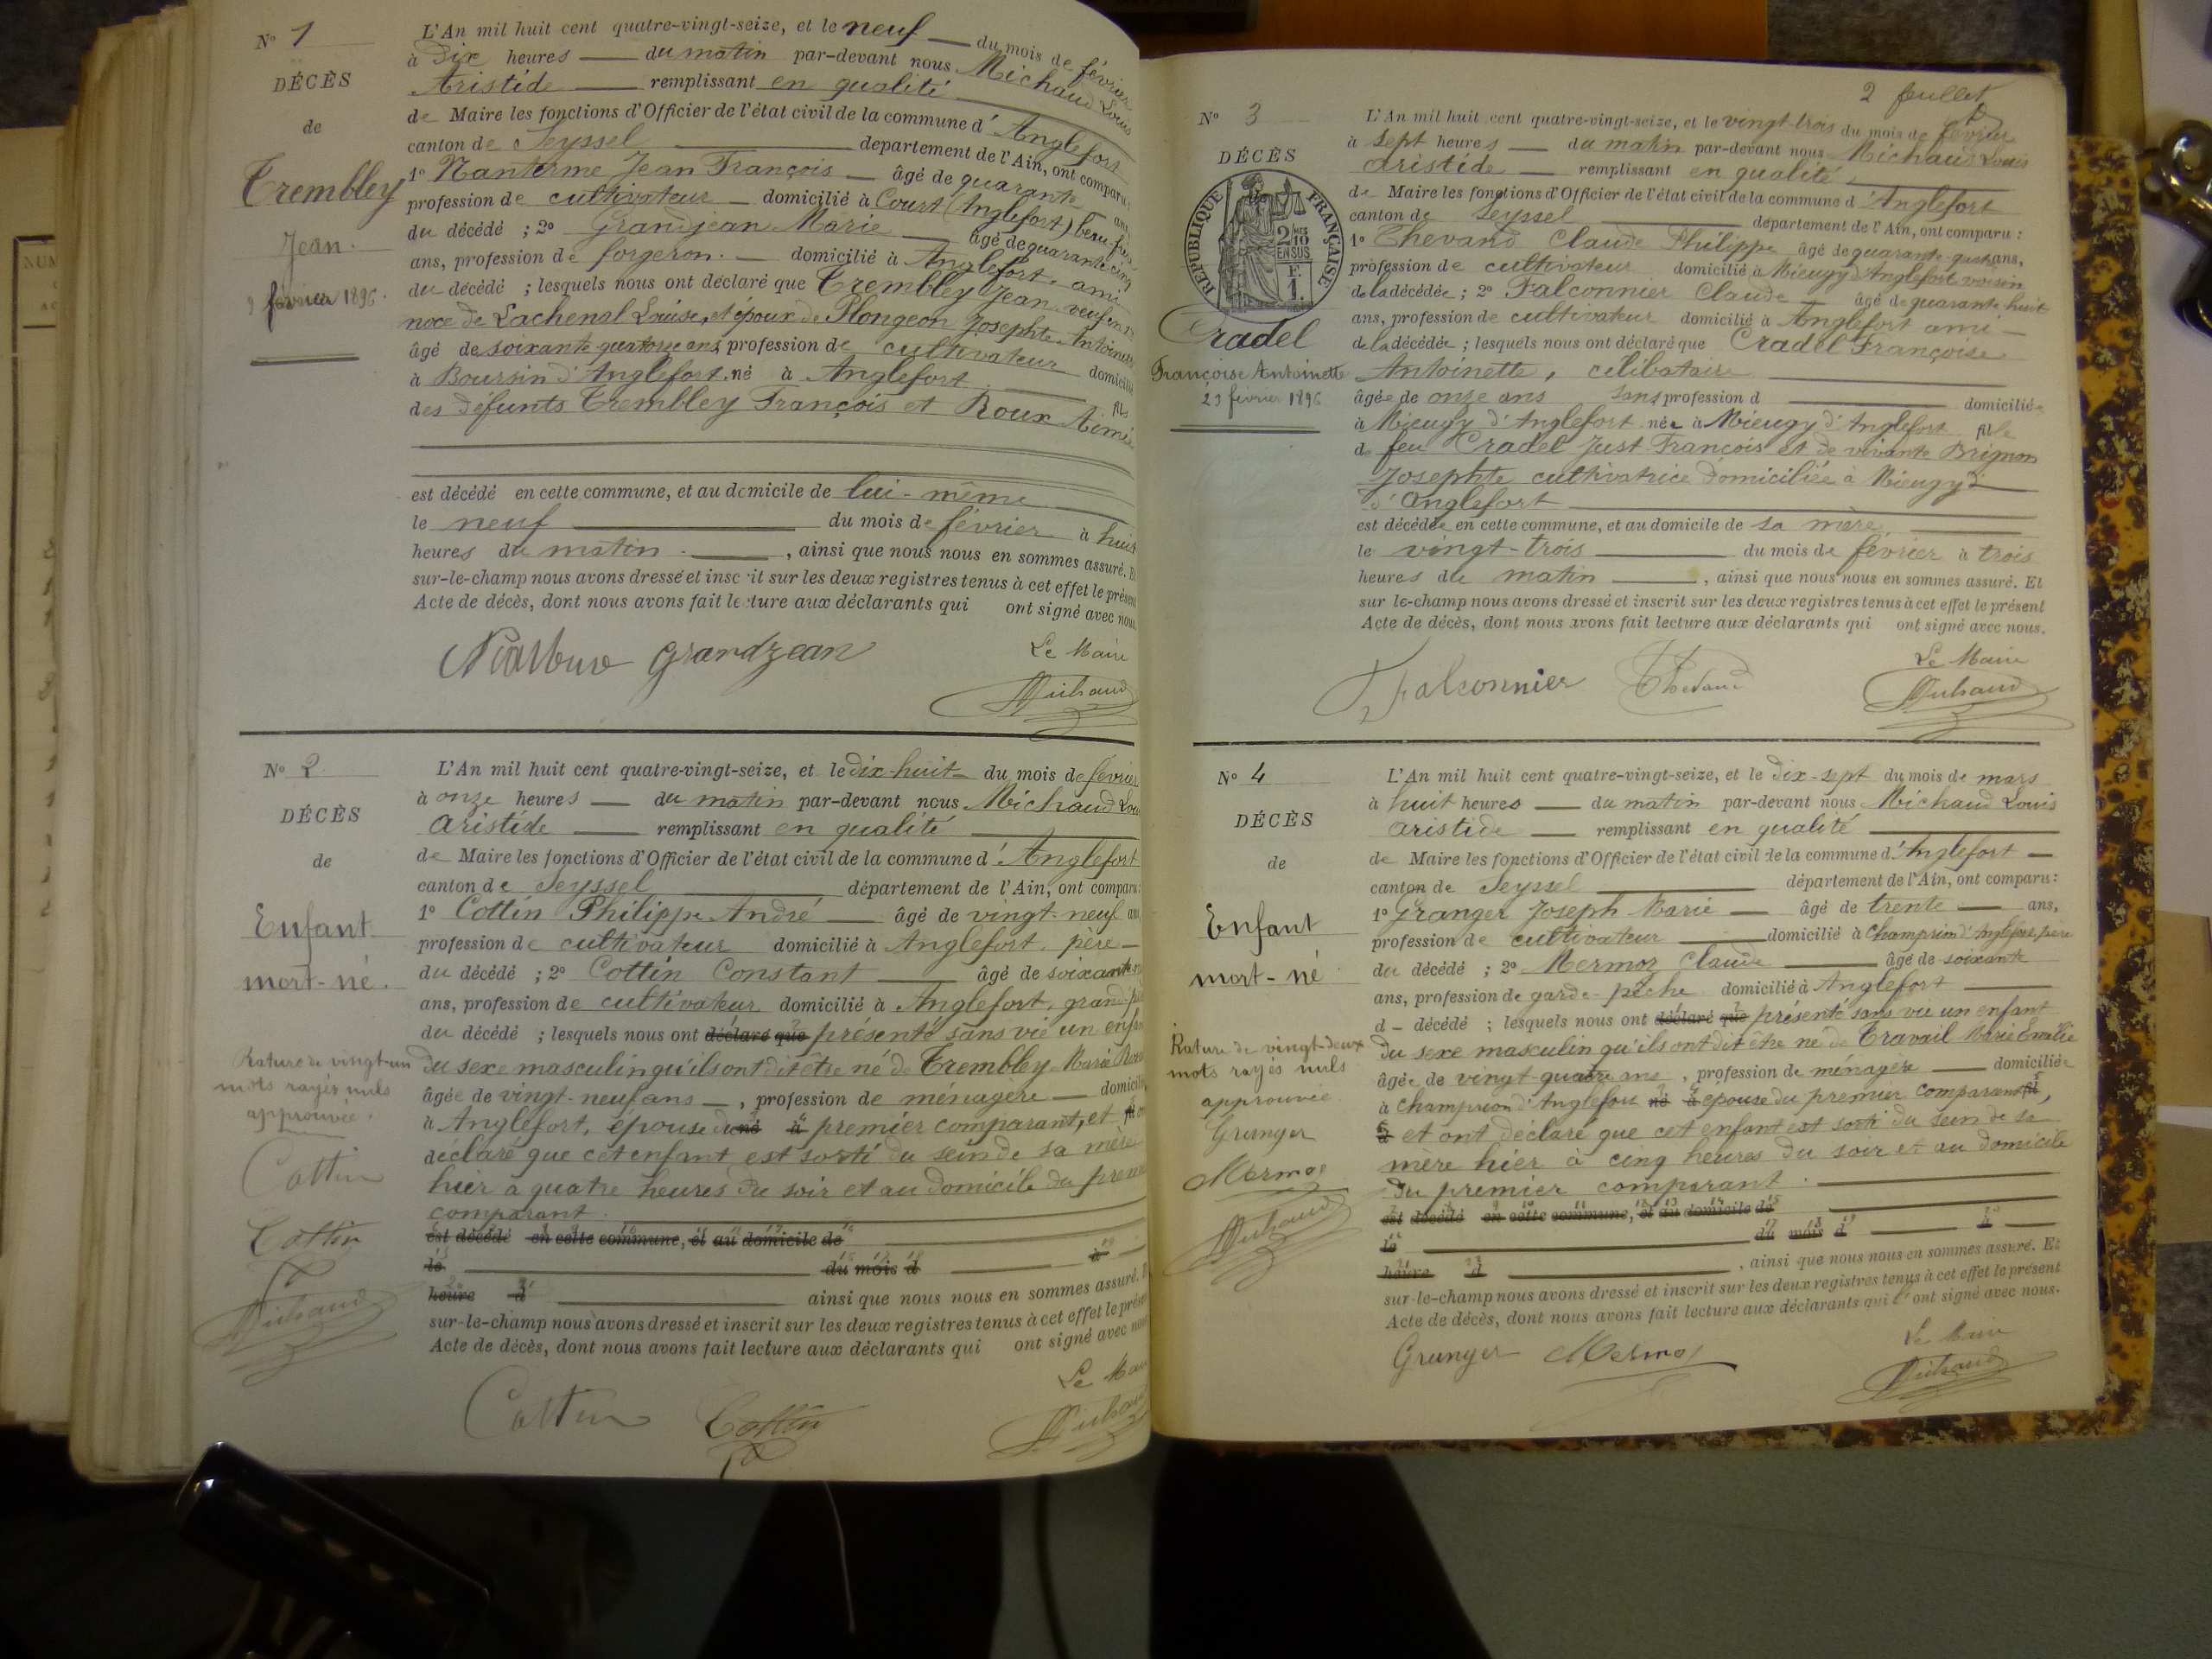 N° 1
DÉCÈS
de
Trembley
Jean.
9 février 1896.
L'An mil huit cent quatre-vingt-seize, et le neuf du mois de février
à Dix heures du matin par-devant nous Michaud Louis
Aristide remplissant en qualité
de Maire les fonctions d'Officier de l'état civil de la commune d'Anglefort
canton de Seyssel département de l'Ain, ont comparu:
1° Nanterme Jean François âgé de quarante ans
profession de cultivateur domicilié à Court (Anglefort) beau-frère
du décédé ; 2° Grandjean Marie âgé de quarante cinq
ans, profession de forgeron. domicilié à Anglefort. ami
du décédé ; lesquels nous ont déclaré que Trembley Jean veuf en
noce de Lachenal Louise, et époux de Plongeon Josephte Antoinette
âgé de soixante quatorze ans, profession de cultivateur domicilié
à Boursin d'Anglefort. né à Anglefort fils
des defunts Trembley François et Roux Aimée
est décédé en cette commune, et au domicile de lui-même
le neuf du mois de février à huit
heures du matin , ainsi que nous nous en sommes assuré. Et
sur-le-champ nous avons dressé et inscrit sur les deux registres tenus à cet effet le présent
Acte de décès, dont nous avons fait lecture aux déclarants qui ont signé avec nous.
Grandjean
Le Maire
Michaud
N° 2
DÉCÈS
de
Enfant
mort-né.
Rature de vingt-un
mots rayés nuls
approuvée.
Cottin
Cottin
Michaud
L'An mil huit cent quatre-vingt-seize, et le dix-huit du mois de février
à onze heures du matin par-devant nous Michaud Louis
Aristide remplissant en qualité
de Maire les fonctions d'Officier de l'état civil de la commune d'Anglefort
canton de Seyssel département de l'Ain, ont comparu:
1° Cottin Philippe André âgé de vingt-neuf ans
profession de cultivateur domicilié à Anglefort. père
du décédé ; 2° Cottin Constant âgé de soixante
ans, profession de cultivateur domicilié à Anglefort, grand-père
du décédé ; lesquels nous ont déclaré que présenté sans vie un enfant
du sexe masculin qu'ils ont dit être né de Trembley Marie
âgée de vingt-neuf ans , profession de ménagère domiciliée
à Anglefort, épouse du né à premier comparant, et fil ont
déclaré que cet enfant est sorti du sein de sa mère
hier à quatre heures du soir et au domicile du premier
comparant.
est décédé en cette commune, et au domicile de
le du mois d à
heure d ainsi que nous nous en sommes assuré. Et
sur-le-champ nous avons dressé et inscrit sur les deux registres tenus à cet effet le présent
Acte de décès, dont nous avons fait lecture aux déclarants qui ont signé avec nous.
Cottin Cottin
Le Maire
Michaud
2 feuillet
N° 3
DÉCÈS
RÉPUBLIQUE FRANÇAISE
2/10 EN SUS
F.
1.
Cradel
Françoise Antoinette
23 février 1896
L'An mil huit cent quatre-vingt-seize, et le vingt-trois du mois de février
à sept heures du matin par-devant nous Michaud Louis
Aristide remplissant en qualité
de Maire les fonctions d'Officier de l'état civil de la commune d'Anglefort
canton de Seyssel département de l'Ain, ont comparu :
1° Thevand Claude Philippe âgé de quarante-quatre ans,
profession de cultivateur domicilié à Mieugy d'Anglefort voisin
de la décédée ; 2° Falconnier Claude âgé de quarante huit
ans, profession de cultivateur domicilié à Anglefort ami
de la décédée ; lesquels nous ont déclaré que Cradel Françoise
Antoinette, célibataire
âgée de onze ans sans profession d domiciliée
à Mieugy d'Anglefort née à Mieugy d'Anglefort fille
de feu Cradel Just François et de vivante Brignon
Josephte cultivatrice domiciliée à Mieugy d
d'Anglefort
est décédée en cette commune, et au domicile de sa mère
le vingt-trois du mois de février à trois
heures du matin , ainsi que nous nous en sommes assuré. Et
sur le-champ nous avons dressé et inscrit sur les deux registres tenus à cet effet le présent
Acte de décès, dont nous avons fait lecture aux déclarants qui ont signé avec nous.
Falconnier Thevand
Le Maire
Michaud
N° 4
DÉCÈS
de
Enfant
mort-né
Rature de vingt-deux
mots rayés nuls
approuvée
Granger
Mermoz
Michaud
L'An mil huit cent quatre-vingt-seize, et le dix-sept du mois de mars
à huit heures du matin par-devant nous Michaud Louis
Aristide remplissant en qualité
de Maire les fonctions d'Officier de l'état civil de la commune d'Anglefort
canton de Seyssel département de l'Ain, ont comparu :
1° Granger Joseph Marie âgé de trente ans,
profession de cultivateur domicilié à Champrion d'Anglefort, père
du décédé ; 2° Mermoz Claude âgé de soixante
ans, profession de garde-pêche domicilié à Anglefort
d décédé ; lesquels nous ont déclaré que présenté sans vie un enfant
du sexe masculin qu'ils ont dit être né de Travail Marie Emélie
âgée de vingt-quatre ans , profession de ménagère domiciliée
à Champrion d'Anglefort né à épouse du premier comparant fil,
d et ont déclaré que cet enfant est sorti du sein de sa
mère hier à cinq heures du soir et au domicile
du premier comparant.
est décédé en cette commune, et au domicile de
le du mois d à
heure d , ainsi que nous nous en sommes assuré. Et
sur-le-champ nous avons dressé et inscrit sur les deux registres tenus à cet effet le présent
Acte de décès, dont nous avons fait lecture aux déclarants qui ont signé avec nous.
Granger Mermoz
Le Maire
Michaud